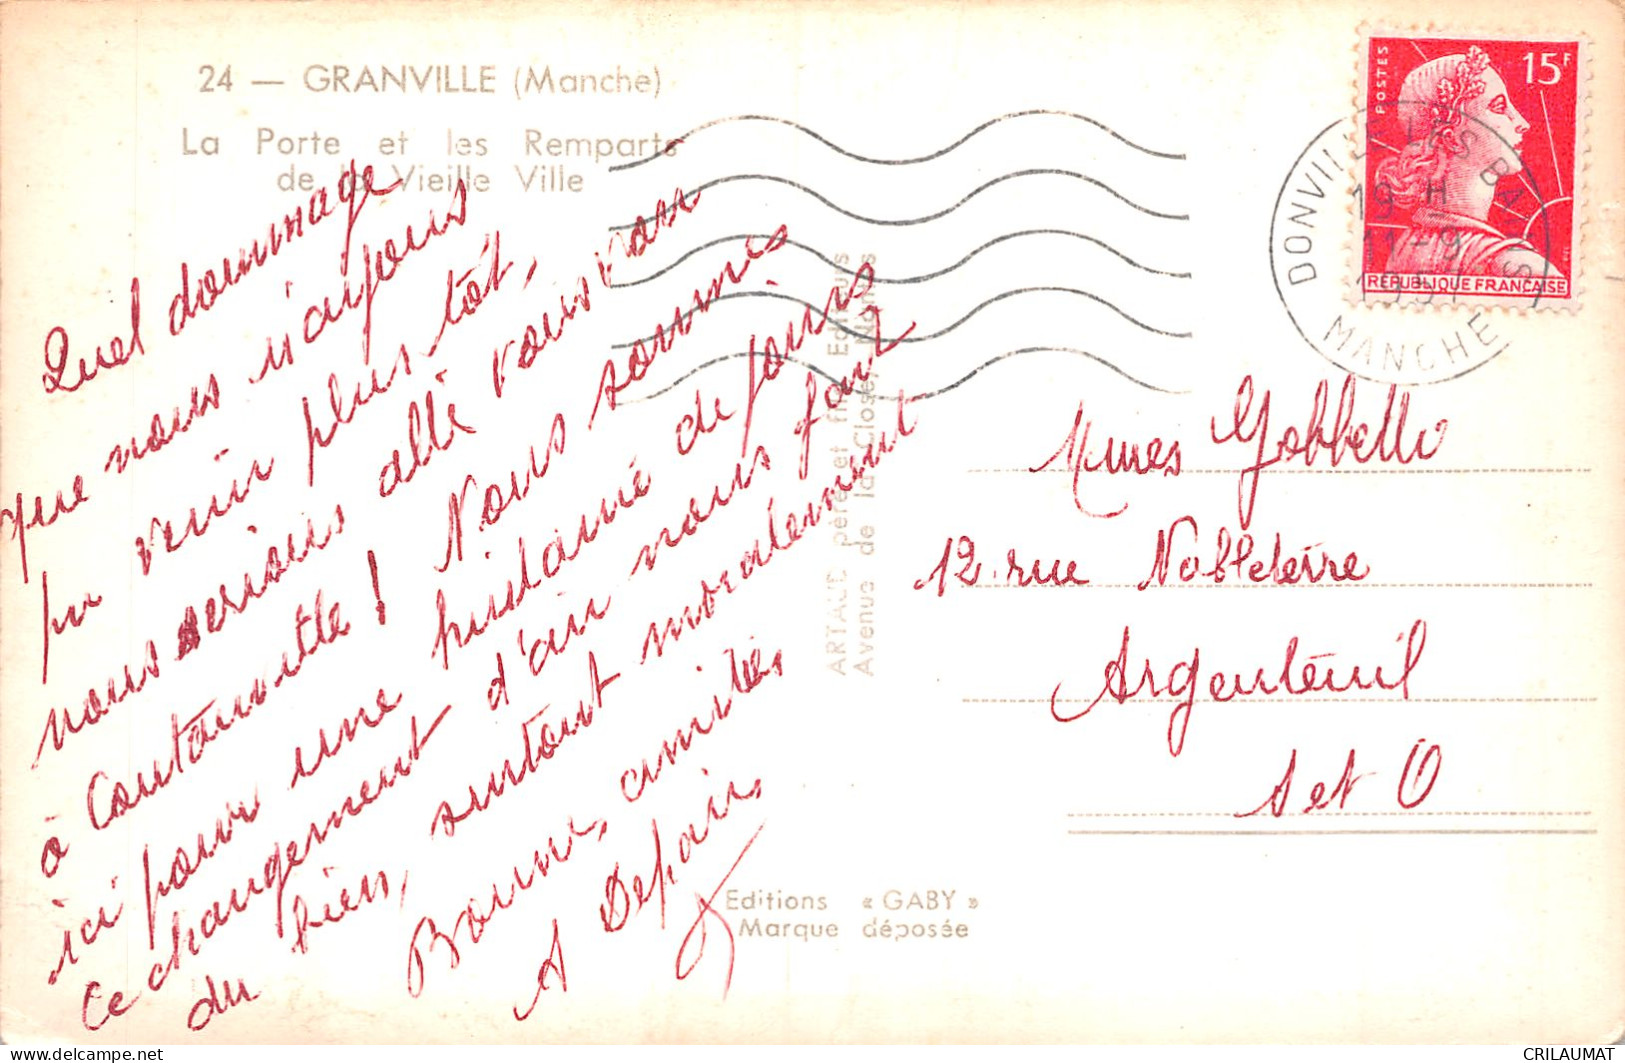 24 — GRANVILLE (Manche)
La Porte et les Remparts
de la Vieille Ville
Quel dommage
que nous n'ayons
pu venir plus tôt,
nous serions allé vous voir
à Coutainville ! Nous sommes
ici pour une huitaine de jours
Ce changement d'air nous fait
du bien, surtout moralement
Bonnes amitiés
A Depair
ARTAUD père et fils Editeurs
Avenue de la Close, Nantes
Editions « GABY »
Marque déposée
POSTES
15F
RÉPUBLIQUE FRANÇAISE
DONVILLE LES BAINS
19 H
11-9
MANCHE
Mmes Gobbelli
12 rue
Argenteuil
S et O
CRILAUMAT